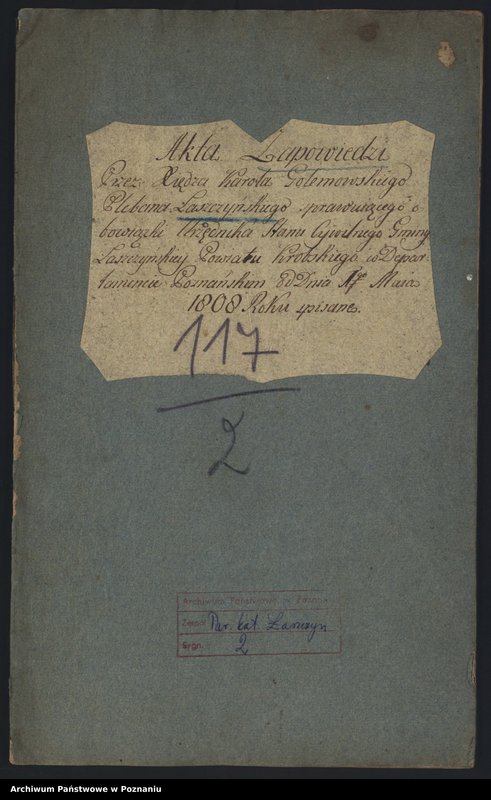 Akta Zapowiedzi
Przez Xiędza Karola Golemowskiego
Plebana Laszczyńskiego sprawuiącego o
bowiązki Urzędnika Stanu Cywilnego Gminy
Laszczyńskiey Powiatu Krobskiego w Depar
tamencie Poznańskim od Dnia 1go Maia
1808 Roku spisane.
117
2
Archiwum Państwowe w
Zespół Par. kat. Łaszczyn
Sygn. 2
Archiwum Państwowe w Poznaniu